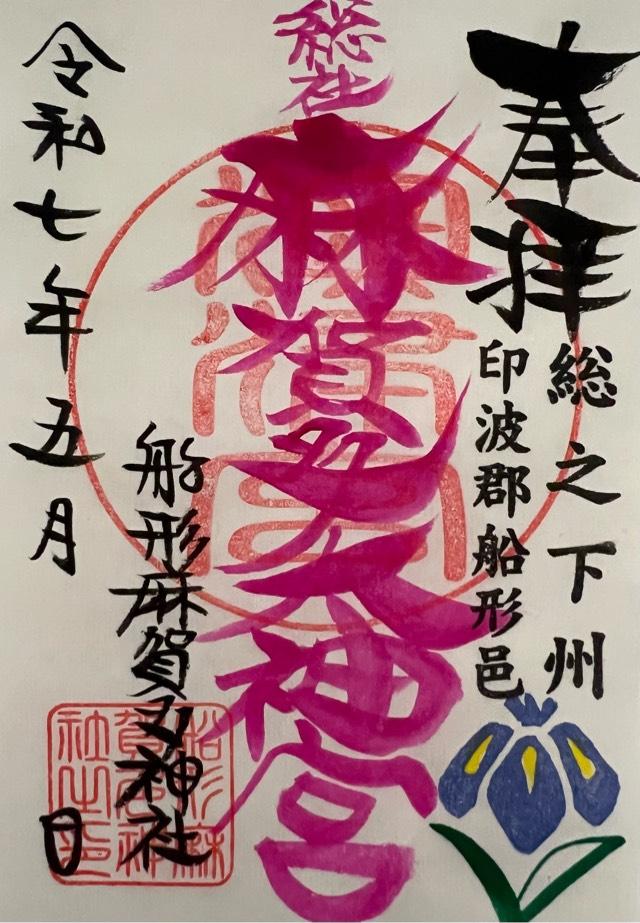 奉拝
総之下州
印波郡船形邑
総社
麻賀多大神宮
船形麻賀多神社
令和七年五月
日
船形麻
賀多神
社之印